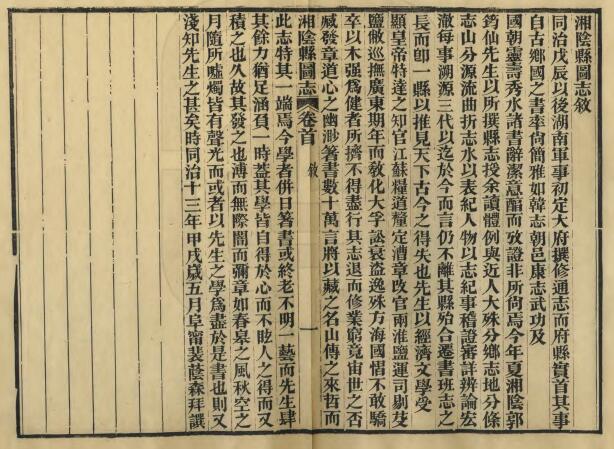 湘陰縣圖志敘
同治戊辰以後湖南軍事初定大府撰修通志而府縣實首其事
自古鄉國之書率尙簡雅如韓志朝邑康志武功及
國朝靈壽秀水諸書辭潔意賅而攷證非所尙焉今年夏湘陰郭
筠仙先生以所撰縣志授余讀體例與近人大殊分鄉志地分條
志山分源流曲折志水以表紀人物以志紀事稽證審詳辨論宏
澈每事溯源三代以迄於今而言仍不離其縣殆合遷書班志之
長而卽一縣以推見天下古今之得失也先生以經濟文學受
顯皇帝特達之知官江蘇糧道釐定漕章改官兩淮鹽運司剔芟
鹽敝巡撫廣東期年而敎化大孚訟衰盜逸殊方海國慴不敢驕
卒以木强爲健者所擠不得盡行其志退而修業窮竟宙世之否
臧發章道心之幽渺箸書數十萬言將以藏之名山傳之來哲而
湘陰縣圖志 卷首 敘 一
此志特其一端焉今學者併日箸書或終老不明一藝而先生肆
其餘力猶足涵負一時蓋其學皆自得於心而不眩人之得而又
積之也久故其發之也溥而無際闇而彌章如春皋之風秋空之
月隨所噓燭皆有聲光而或者以先生之學爲盡於是書也則又
淺知先生之甚矣時同治十三年甲戌歲五月阜甯裴蔭森拜譔